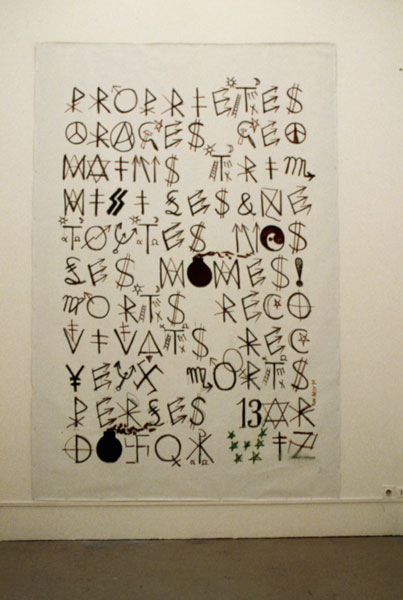 PROPRIETES
ORAGES GEO
MAINS TRIM
MISSI LES&NE
TOUTES NOS
LES MOMES!
MORTS RECO
VIVATS REC
YEUX MORTS
PERLES 13AR